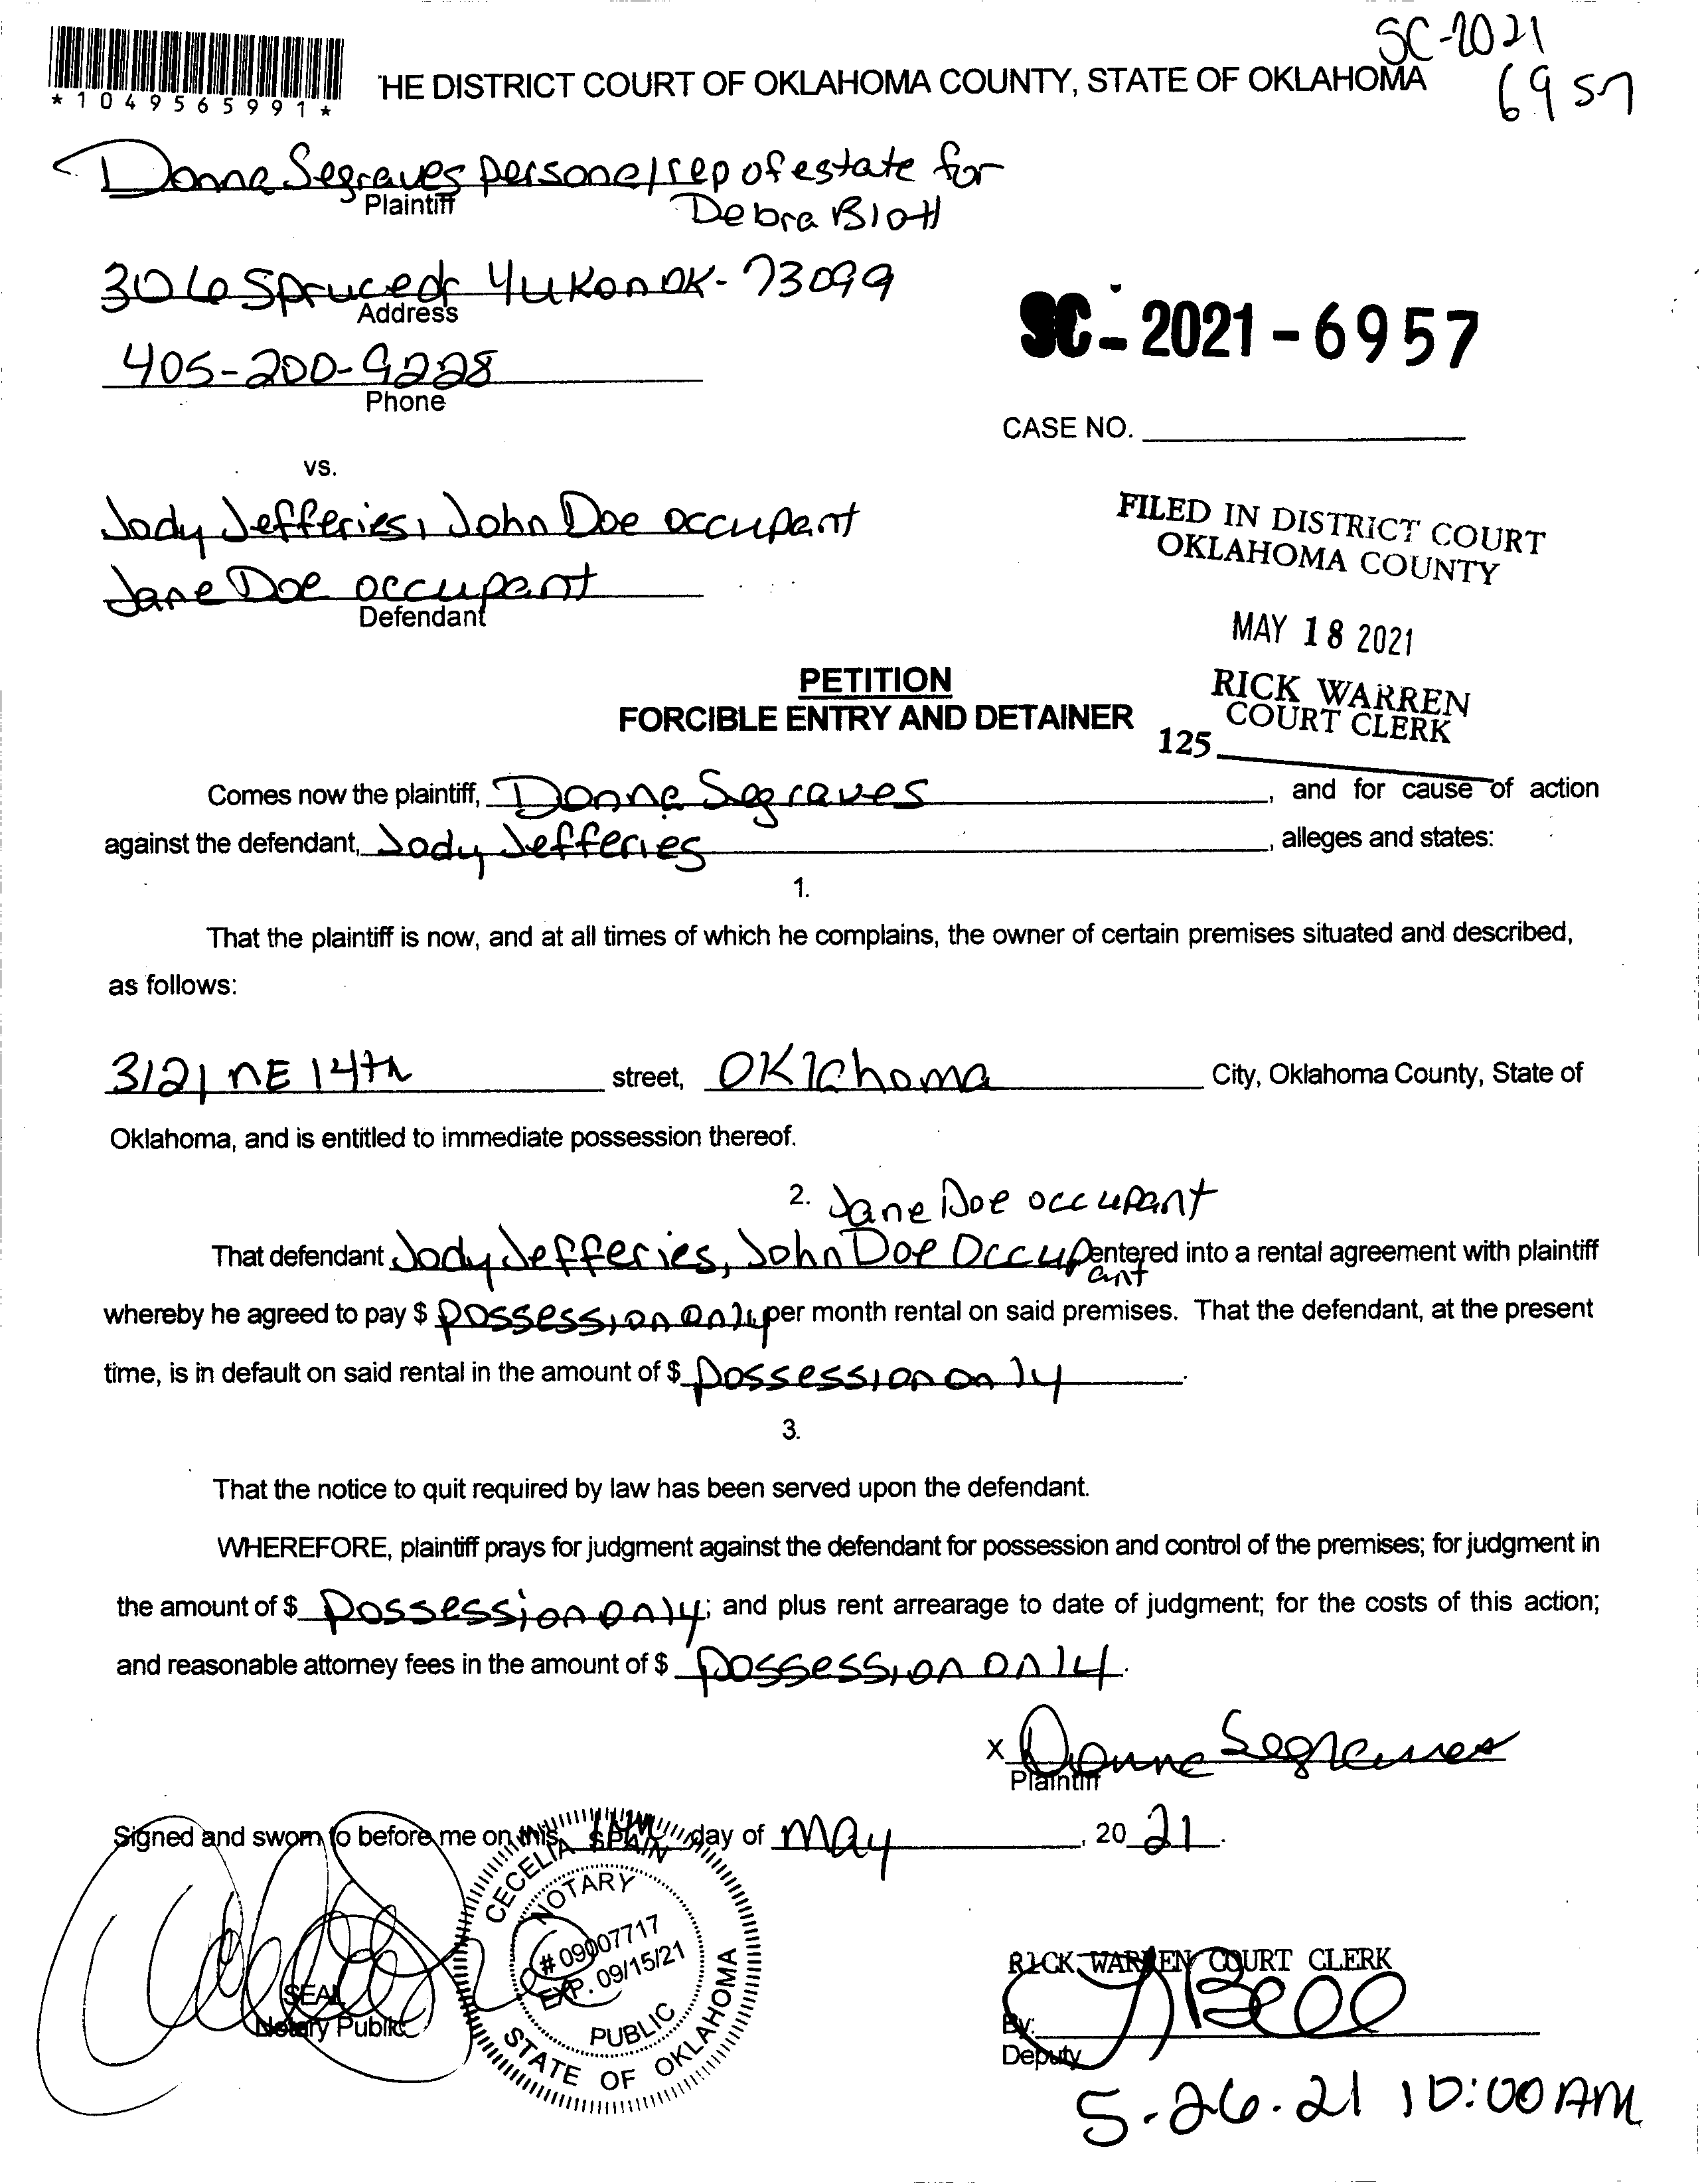 SC-2021
6957
*1049565991*
'HE DISTRICT COURT OF OKLAHOMA COUNTY, STATE OF OKLAHOMA
Donna Segraves personal rep of estate for
Plaintiff
Debra Blott
306 Spruce dr Yukon OK- 73099
Address
SC-2021-6957
405-200-9228
Phone
CASE NO.
vs.
Jody Jefferies, John Doe occupant
Jane Doe occupant
Defendant
FILED IN DISTRICT COURT
OKLAHOMA COUNTY
MAY 18 2021
RICK WARREN
COURT CLERK
125
PETITION
FORCIBLE ENTRY AND DETAINER
Comes now the plaintiff, Donna Segraves, and for cause of action
against the defendant, Jody Jefferies, alleges and states:
1.
That the plaintiff is now, and at all times of which he complains, the owner of certain premises situated and described,
as follows:
3121 NE 14th street, Oklahoma City, Oklahoma County, State of
Oklahoma, and is entitled to immediate possession thereof.
2. Jane Doe occupant
That defendant Jody Jefferies, John Doe Occupant entered into a rental agreement with plaintiff
whereby he agreed to pay $ possession only per month rental on said premises. That the defendant, at the present
time, is in default on said rental in the amount of $ possession only.
3.
That the notice to quit required by law has been served upon the defendant.
WHEREFORE, plaintiff prays for judgment against the defendant for possession and control of the premises; for judgment in
the amount of $ possession only; and plus rent arrearage to date of judgment; for the costs of this action;
and reasonable attorney fees in the amount of $ possession only.
X Donna Segraves
Plaintiff
Signed and sworn to before me on this day of May, 20 21.
CECELIA SPAIN
NOTARY
# 09007717
EXP. 09/15/21
PUBLIC
STATE OF OKLAHOMA
SEAL
Notary Public
RICK WARREN COURT CLERK
By:
Deputy
5.26.21 10:00AM